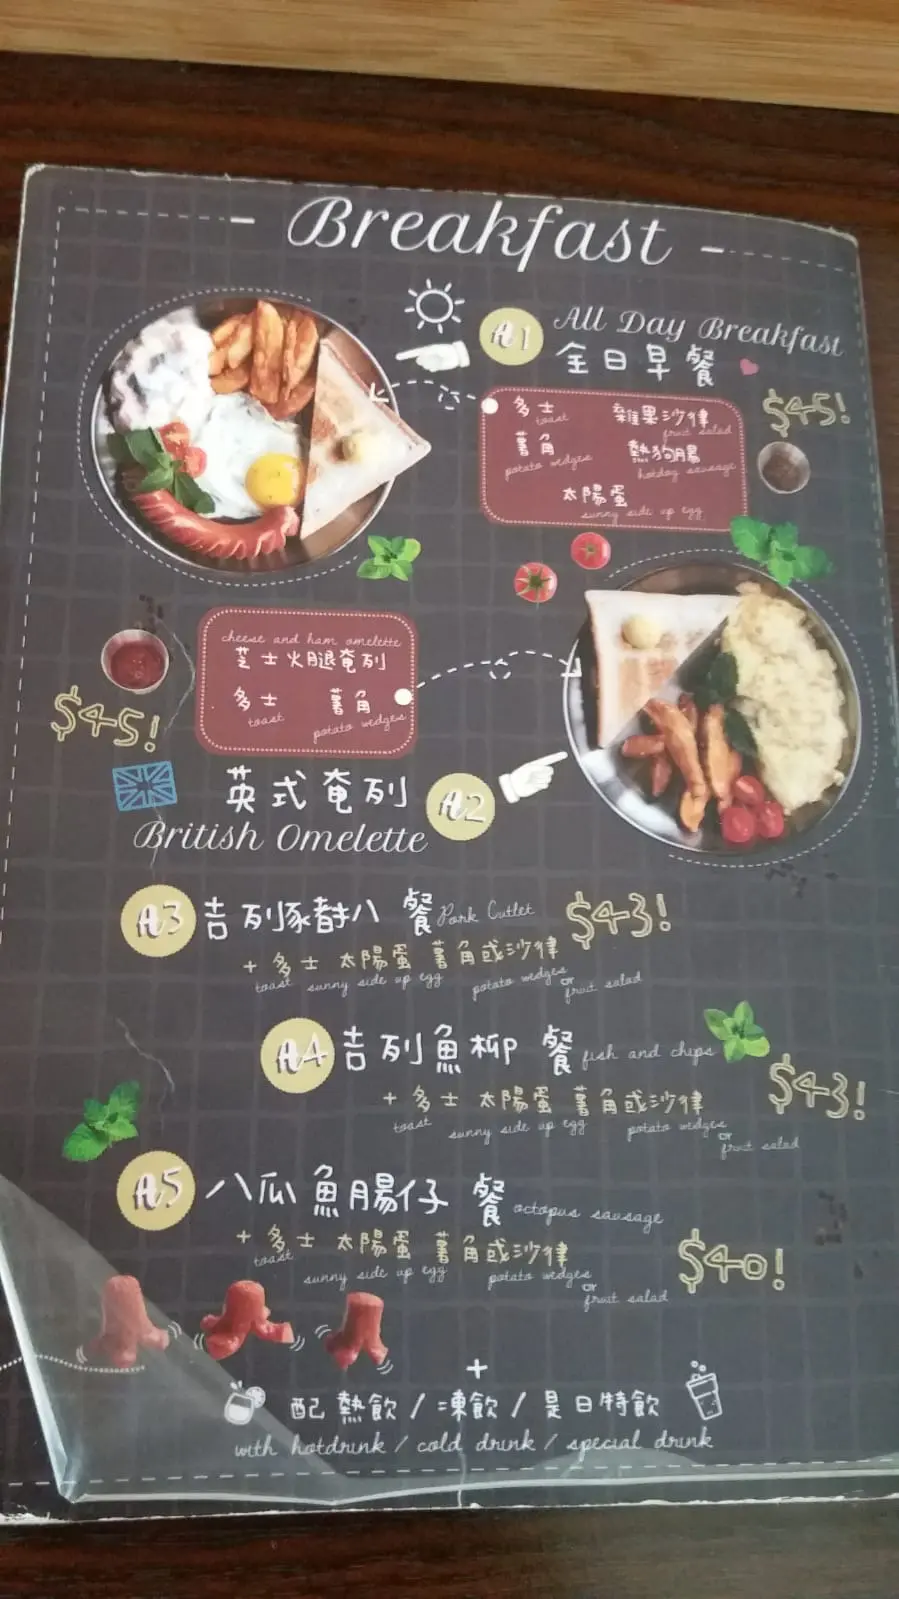 Breakfast
A1 All Day Breakfast
全日早餐
$45!
多士 雜果沙律
toast fruit salad
薯角 熱狗腸
potato wedges hotdog sausage
太陽蛋
sunny side up egg
cheese and ham omelette
芝士火腿奄列
多士 薯角
toast potato wedges
$45!
英式奄列 A2
British Omelette
A3 吉列豬扒 餐 Pork Cutlet $43!
+ 多士 太陽蛋 薯角或沙律
toast sunny side up egg potato wedges or fruit salad
A4 吉列魚柳 餐 fish and chips $43!
+ 多士 太陽蛋 薯角或沙律
toast sunny side up egg potato wedges or fruit salad
A5 八瓜魚腸仔 餐 octopus sausage
+ 多士 太陽蛋 薯角或沙律 $40!
toast sunny side up egg potato wedges or fruit salad
+
配熱飲 / 凍飲 / 是日特飲
with hotdrink / cold drink / special drink